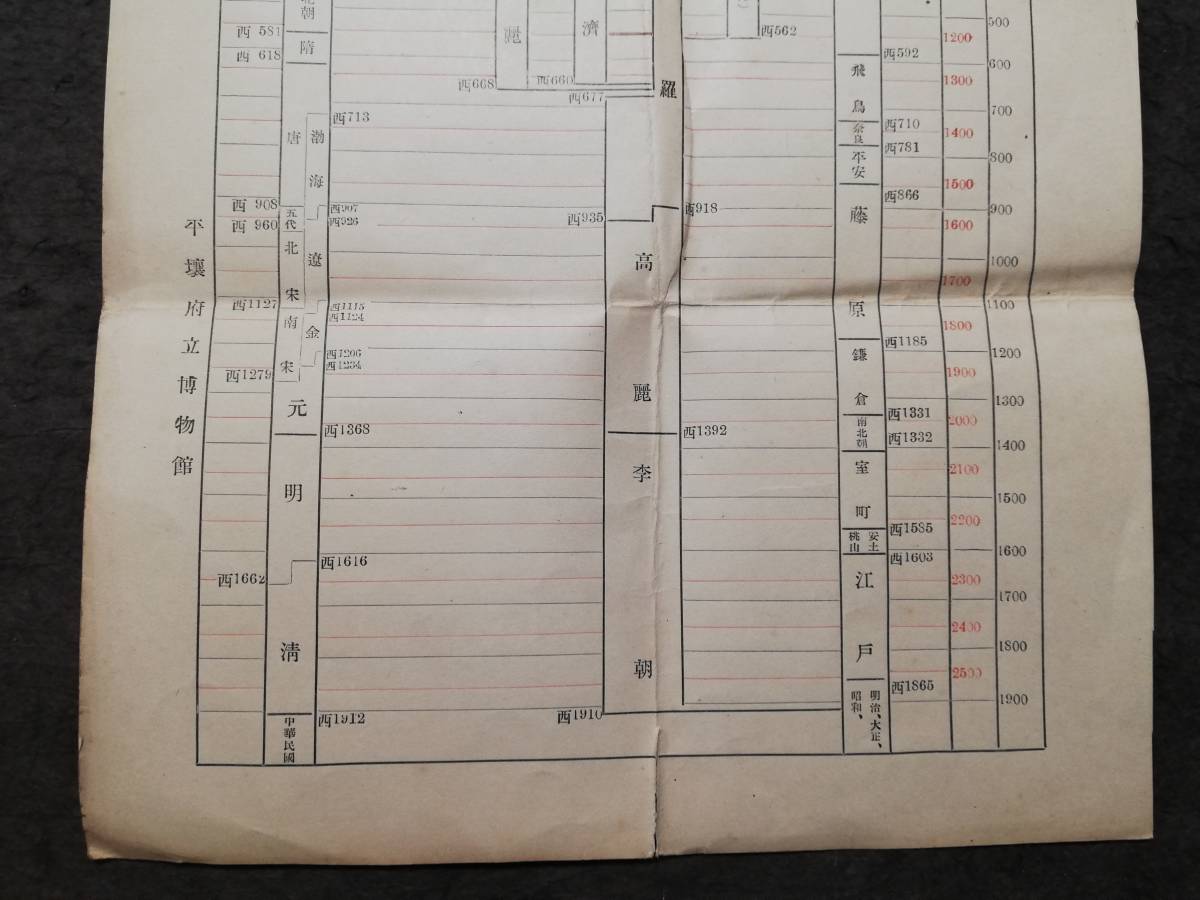 平壤府立博物館
北朝
西 581
隋
西 618
唐
渤海
西713
西 908
五代
西 960
西907
西926
北宋
遼
西1127
西1115
西1124
南宋
金
西1206
西1234
西1279
元
西1368
明
西1616
西1662
清
西1912
中華民國
麗
濟
西668
西660
西677
羅
西562
西935
西918
高麗
西1392
李朝
西1910
西592
飛鳥
西710
奈良
西781
平安
西866
藤原
西1185
鎌倉
西1331
南北朝
西1332
室町
西1585
安土
桃山
西1603
江戶
西1865
明治、大正、
昭和、
1200
1300
1400
1500
1600
1700
1800
1900
2000
2100
2200
2300
2400
2500
500
600
700
800
900
1000
1100
1200
1300
1400
1500
1600
1700
1800
1900